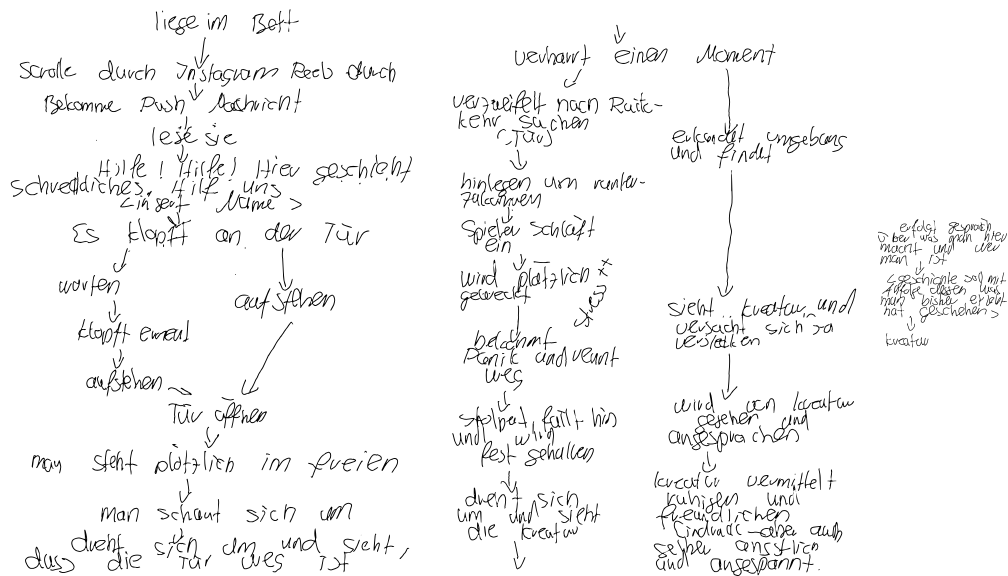 liege im Bett
Scrolle durch Instagram Reels durch
Bekomme Push Nachricht
lese sie
Hilfe! Hilfe! Hier geschieht
schreckliches. Hilf uns
<insert Name>
Es klopft an der Tür
warten
aufstehen
klopft erneut
aufstehen
Tür öffnen
man steht plötzlich im freien
man schaut sich um
dreht sich um und sieht,
dass die Tür weg ist
verharrt einen Moment
verzweifelt nach Rück-
kehr suchen
(Tür)
hinlegen um runter-
zukommen
Spieler schläft
ein
wird plötzlich
geweckt
bekommt
Panik und rennt
weg
stolpert fällt hin
und wird
fest gehalten
dreht sich
um und sieht
die Kreatur
erkundet umgebung
und findet
sieht kreatur und
versucht sich zu
verstecken
wird von kreatur
gesehen und
angesprochen
kreatur vermittelt
ruhigen und
freundlichen
Eindruck aber auch
selber ängstlich
und angespannt.
erfolgt gespräch
über was man hier
macht und wer
man ist
<geschichte soll mit
infos dessen was
man bisher erlebt
hat geschehen>
kreatur